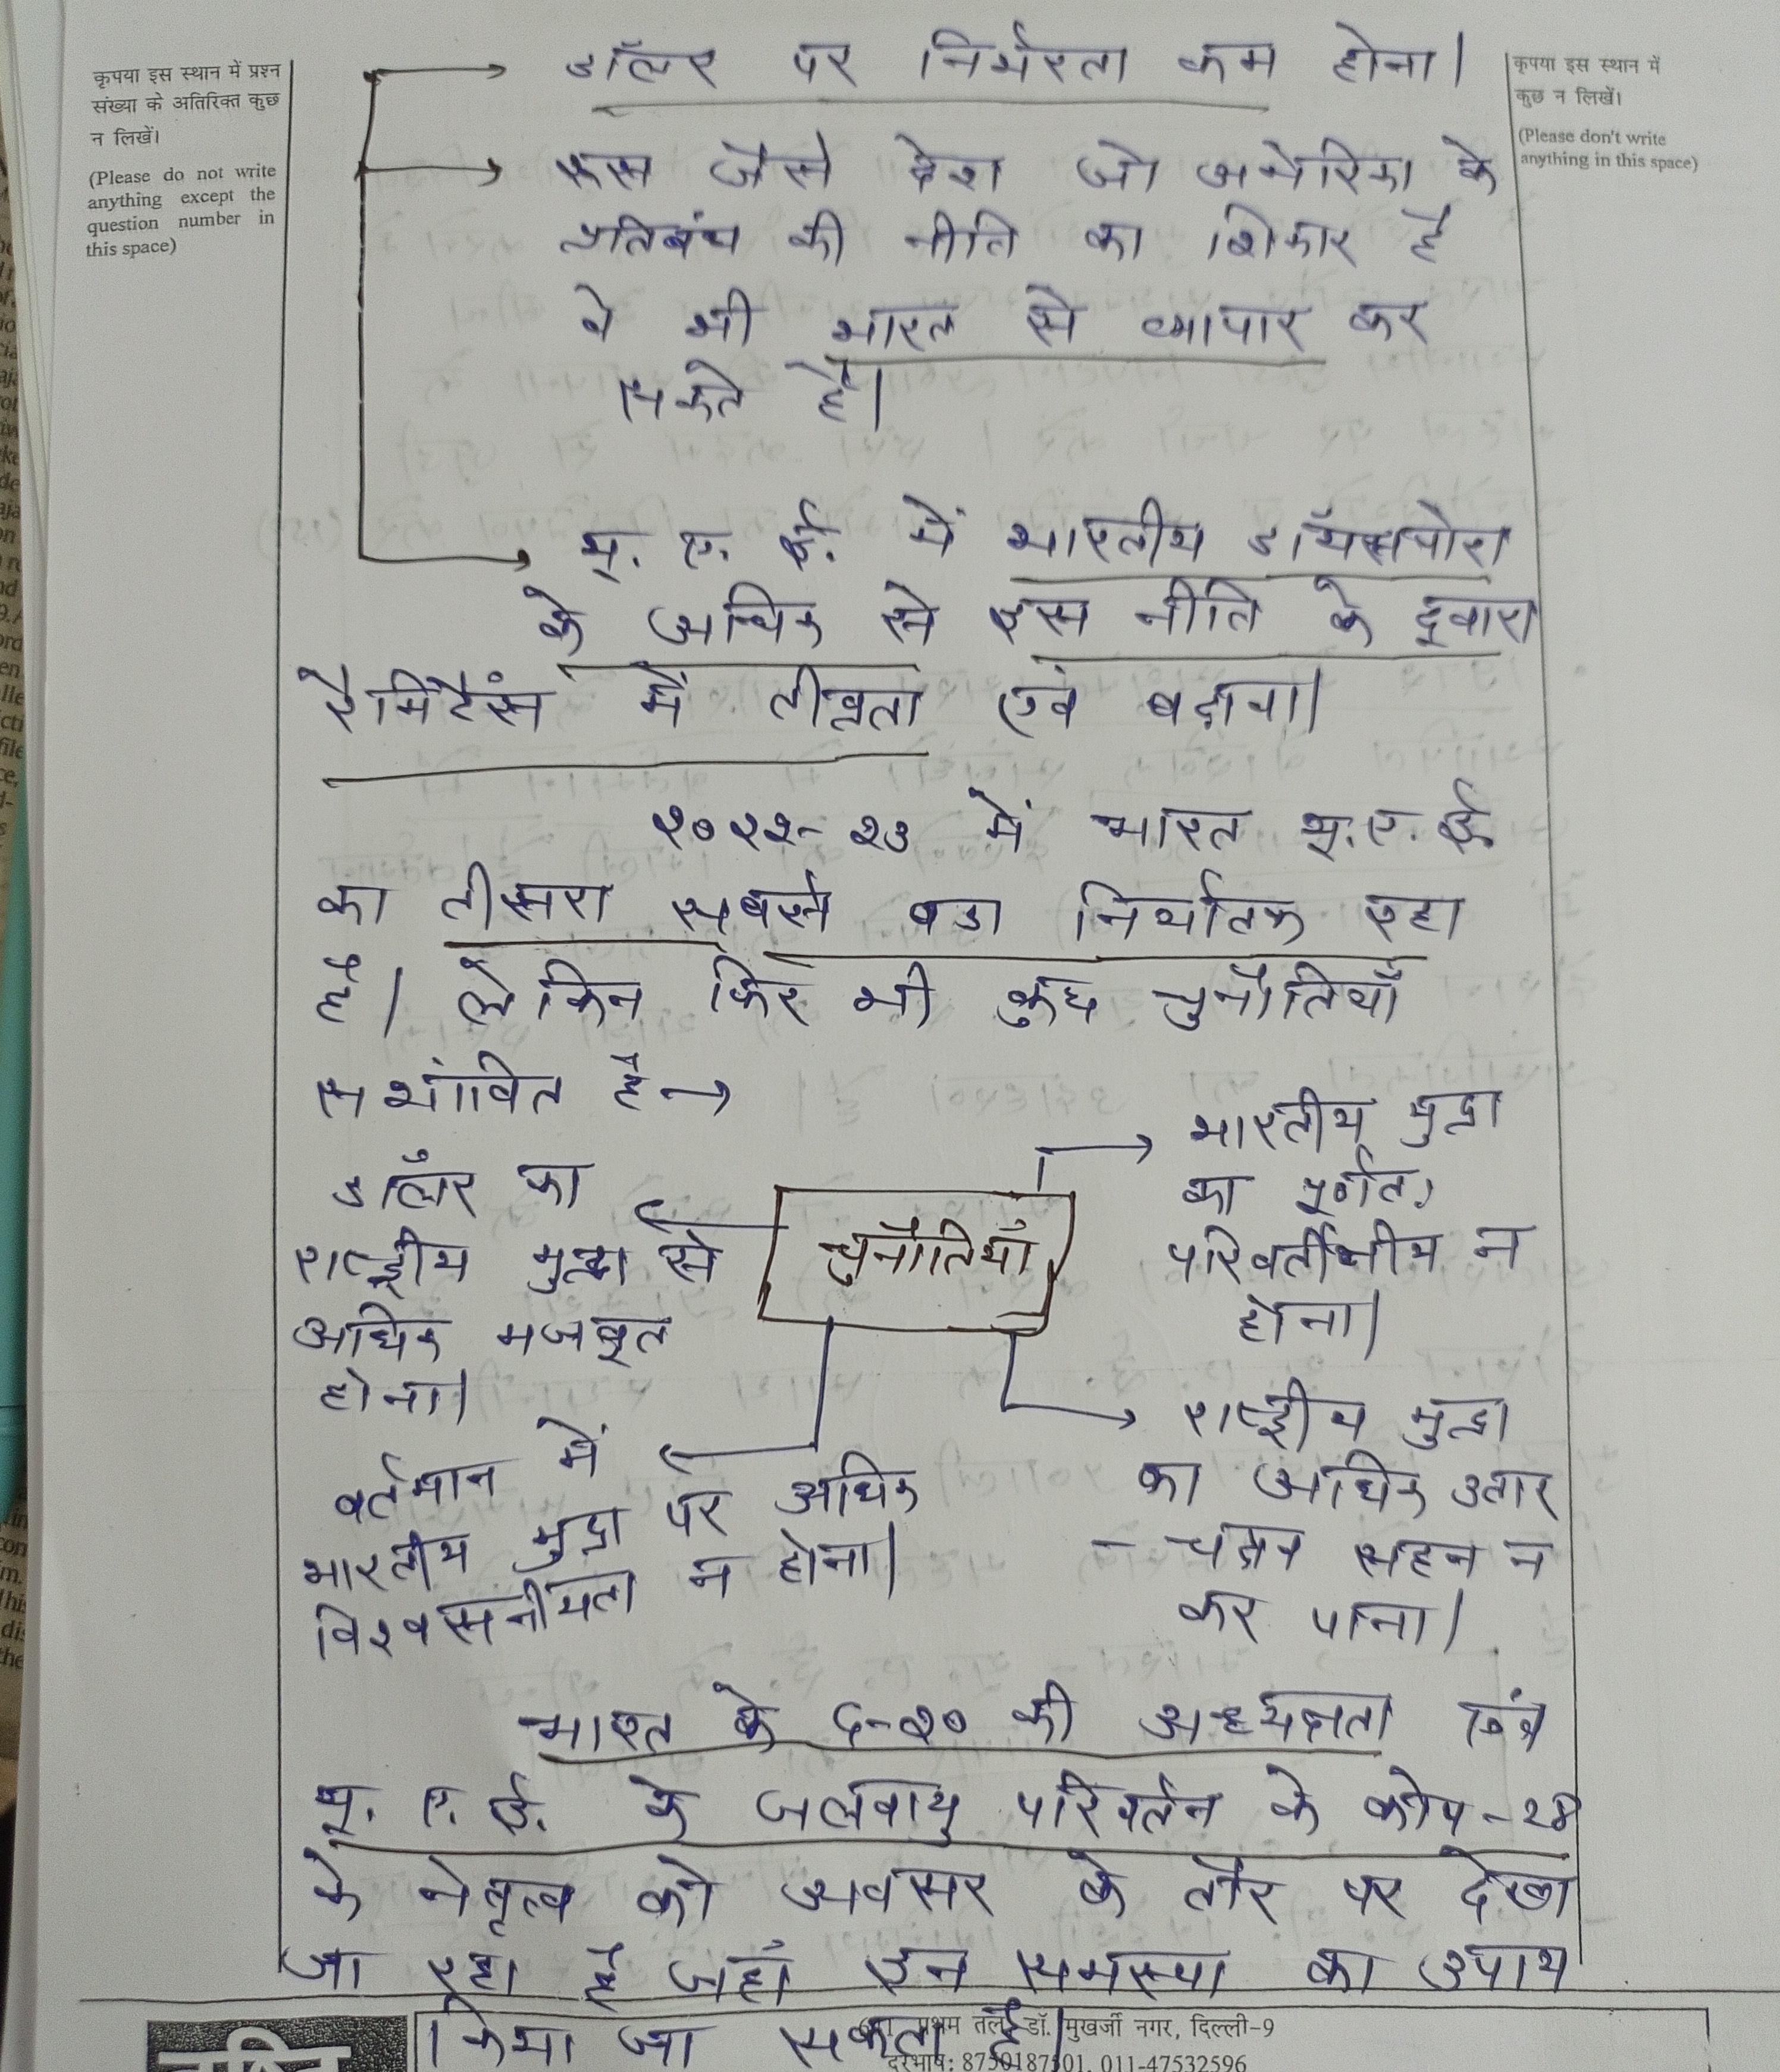 कृपया इस स्थान में प्रश्न
संख्या के अतिरिक्त कुछ
न लिखें।
(Please do not write
anything except the
question number in
this space)
कृपया इस स्थान में
कुछ न लिखें।
(Please don't write
anything in this space)
डॉलर पर निर्भरता कम होना।
रूस जैसे देश जो अमेरिका के
प्रतिबंध की नीति का शिकार है
वे भी भारत से व्यापार कर
सकते है।
यू. ए. ई. में भारतीय डॉयसपोरा
के अधिक से इस नीति के द्वारा
रैमिटैंस में तीव्रता एवं बढ़ावा।
२०२२-२३ में भारत यू.ए.ई
का तीसरा सबसे बडा निर्यातक रहा
है। लेकिन फिर भी कुछ चुनौतियाँ
सभांवित है →
चुनौतियाँ
डॉलर का
राष्ट्रीय मुद्रा से
अधिक मजबूत
होना।
भारतीय मुद्रा
का पूर्णतः
परिवर्तीनीय न
होना।
वर्तमान में
भारतीय मुद्रा पर अधिक
विश्वसनीयता न होना।
राष्ट्रीय मुद्रा
का अधिक उतार
- चढ़ाव सहन न
कर पाना।
भारत के G-२० की अध्यक्षता एंव
यू. ए. ई. के जलवायु परिवर्तन के कोप-28
के नेतृत्व को अवसर के तौर पर देखा
जा रहा है जहाँ इन समस्या का उपाय
किया जा सकता है।
प्रथम तल, डॉ. मुखर्जी नगर, दिल्ली-9
दूरभाष: 8750187501, 011-47532596